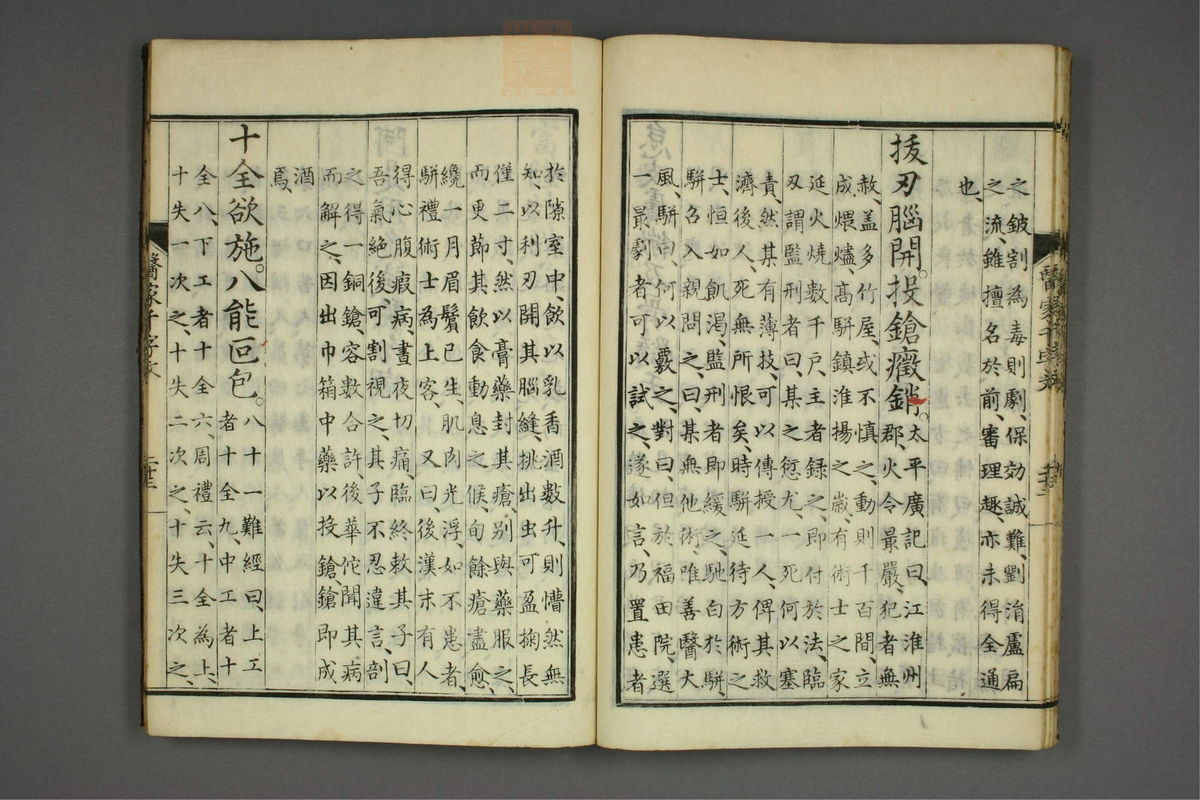 之、鈹割為毒則劇、保効誠難、劉涓盧扁
之流、錐擅名於前、審理趣、亦未得全通
也、
抜刃腦開。投鎗癥銷。
太平廣記曰、江淮州
郡、火令最嚴、犯者無
赦、盖多竹屋、或不慎之、動則千百間、立
成煨燼、髙駢鎮淮揚之嵗、有術士之家
延火燒數千戶、主者録之、即付於法、臨
刄謂監刑者曰、某之愆尤、一死何以塞
責、然某有薄技、可以傳授一人、俾其救
濟後人、死無所恨矣、時駢延待方術之
士、恒如飢渴、監刑者即緩之、馳白於駢、
駢召入親問之、曰、某無他術、唯善醫大
風、駢曰、何以覈之、對曰、但於福田院、選
一最劇者、可以試之、遂如言、乃置患者
於隙室中、飲以乳香酒數升、則懵然無
知、以利刃開其腦縫、挑出虫可盈掬、長
僅二寸、然以膏藥封其瘡、別與藥服之、
而更節其飲食動息之候、旬餘瘡盡愈、
纔一月眉鬢已生、肌肉光浮、如不患者、
駢禮術士為上客、又曰、後漢末有人
得心腹瘕病、晝夜切痛、臨終敕其子曰、
吾氣絕後、可割視之、其子不忍違言、剖
之、得一銅鎗、容數合許、後華佗聞其病
而解之、因出巾箱中藥以投鎗、鎗即成
酒
焉、
十全欲施。八能回包。
八十一難經曰、上工
者十全九、中工者十
全八、下工者十全六、周禮云、十全為上、
十失一次之、十失二次之、十失三次之、